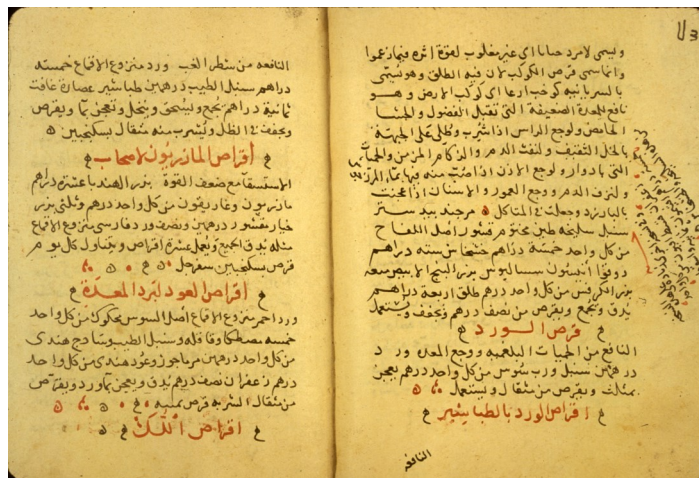 ويسمى لامرد حنانا اي غير مغلوب لقوة اثره فيما زعموا
وانما سمي قرص الكوكب لان فيه الطلق وهو يسمى
بالسريانية كوخب ارعا اي كوكب الارض وهو
نافع للمعدة الضعيفة التي تقبل الفضول والجشا
الحامض ولوجع الراس اذا شرب وطلي على الجبهة
بالخل الثقيف ولنفث الدم والزكام المزمن والحميات
التي بادوار ولوجع الاذن اذا
ولنزف الدم ووجع العمور والاسنان اذا عجنت
بالبارزد وجعلت في المتاكل جندبيدستر
سنبل سليخه طين مختوم قشور اصل اللفاح
من كل واحد خمسة دراهم خشخاش ستة دراهم
دوقوا انيسون سساليوس بزر البنج الابيض ميعه
بزر الكرفس من كل واحد درهم طلق اربعة دراهم
يدق ويجمع ويقرص من نصف درهم ويجفف ويستعمل
قرص الورد
النافع من الحميات البلغميه ووجع المعده ورد
درهمين سنبل ورب سوس من كل واحد درهم يعجن
بمثلث ويقرص من مثقال ويستعمل
اقراص الورد بالطباشير
النافعه
النافعه من شطر الغب ورد منزوع الاقماع خمسة
دراهم سنبل الطيب درهمين طباشير عصارة غافت
ثمانية دراهم يجمع ويسحق وينخل ويعجن بما ويقرص
ويجفف في الظل ويشرب منه مثقال بسكنجبين
اقراص المازريون لاصحاب
الاستسقا مع ضعف القوة بزر الهندبا عشرة دراهم
مازريون وغاريقون من كل واحد درهم وثلثي بزر
خيار مقشور درهمين ونصف ورد فارسي منزوع الاقماع
مثله يدق الجميع ويعمل عشرة اقراص ويتناول كل يوم
قرص بسكنجبين سفرجلي
اقراص العود لبرد المعدة
ورد احمر منزوع الاقماع اصل السوس محكوك من كل واحد
خمسه مصطكا وقاقله وسنبل الطيب وساذج هندي
من كل واحد درهمين مرماجوز وعود هندي من كل واحد
درهم زعفران نصف درهم يدق ويعجن بماورد ويقرص
من مثقال الشربه قرص بميبه
اقراص اللك